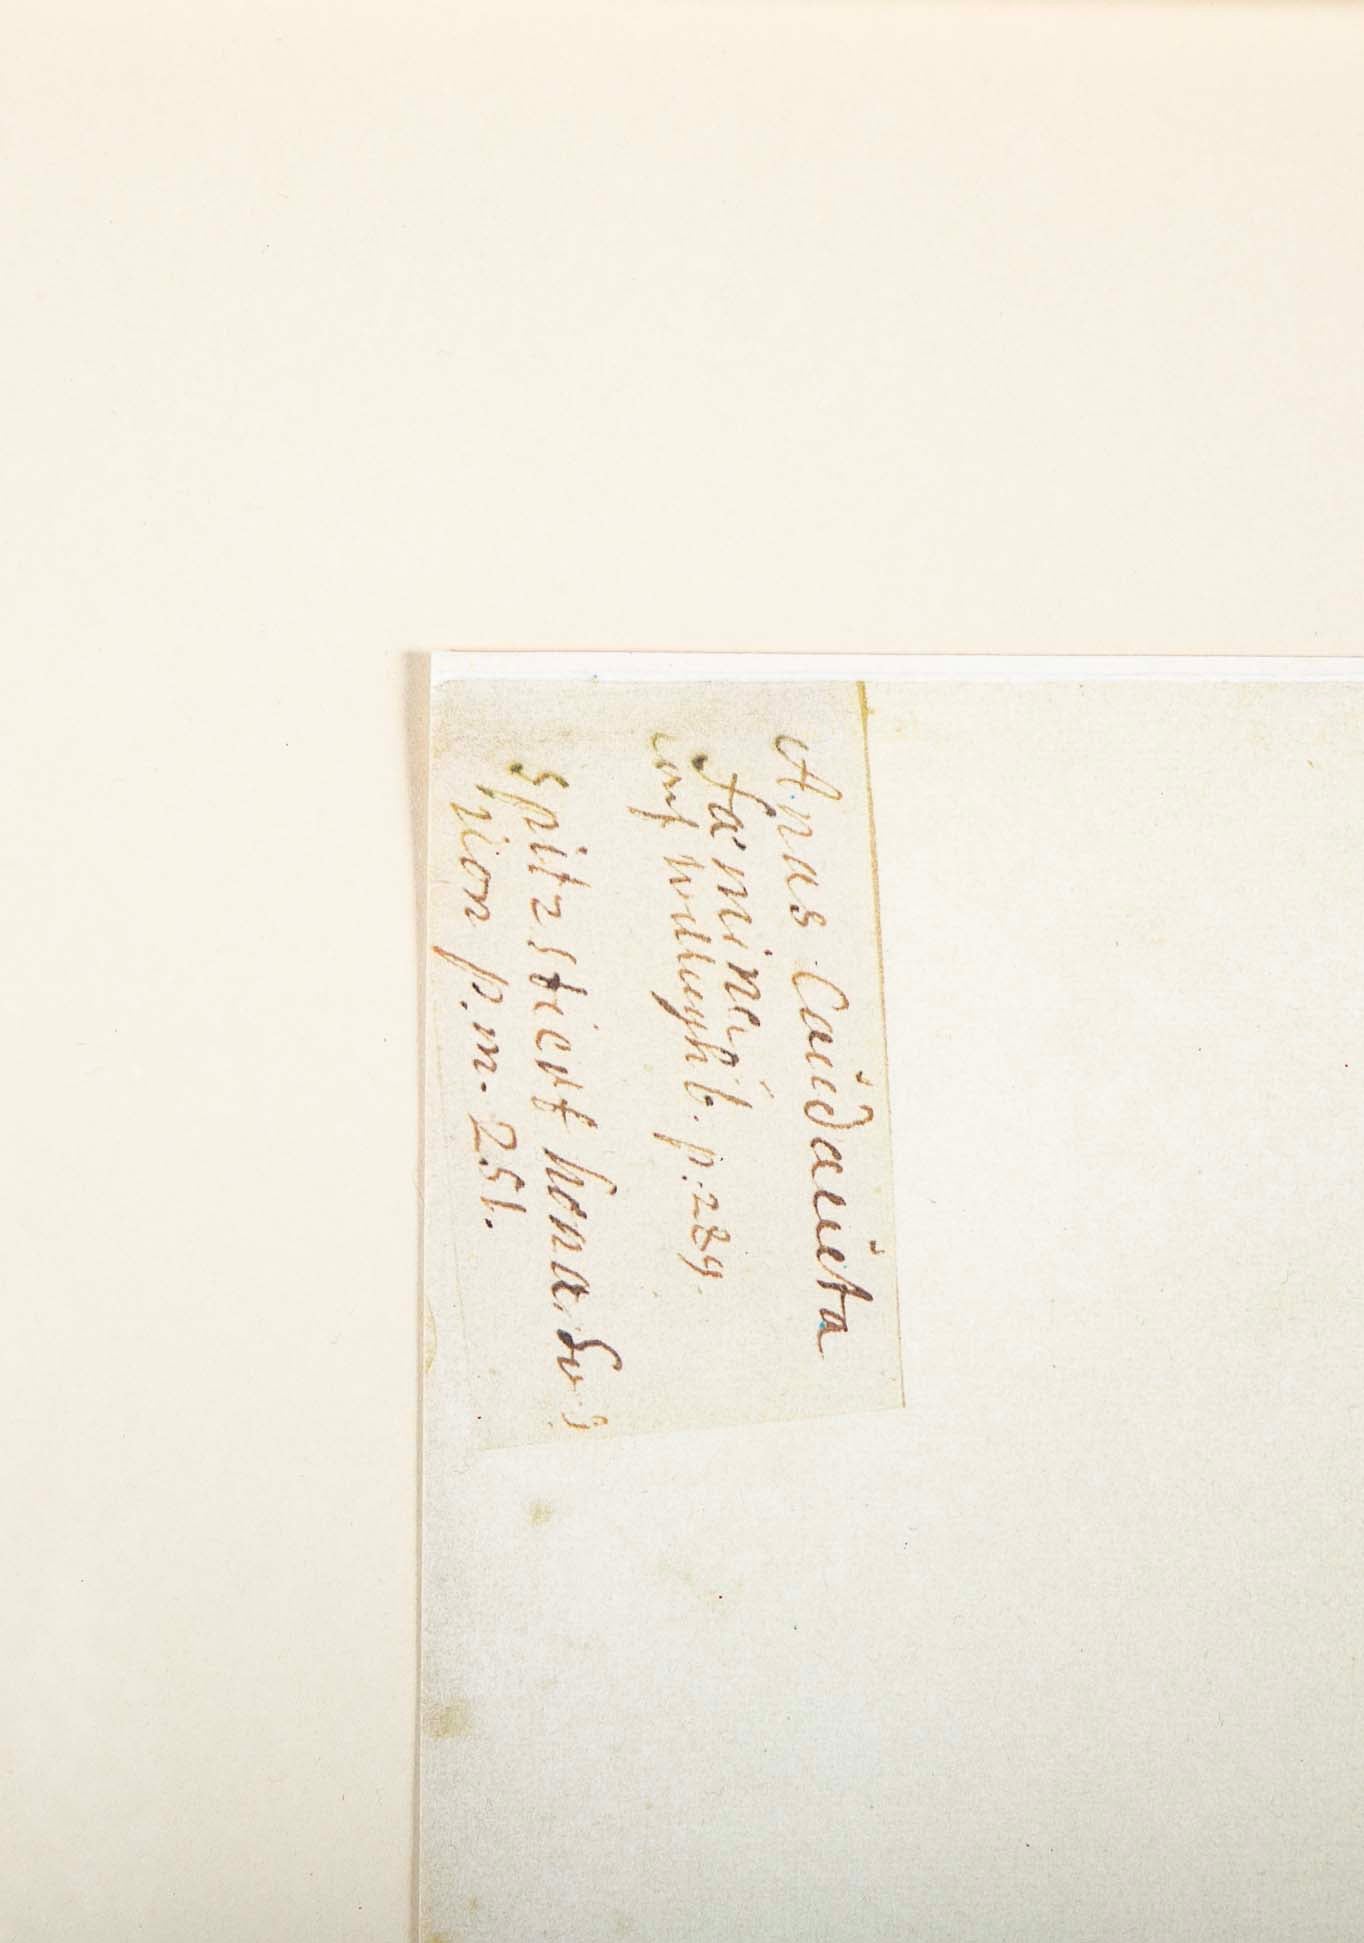 Anas Caudacuta
Fæmina
conf Willughb. p. 289.
Spitzstiert
p. m. 251.